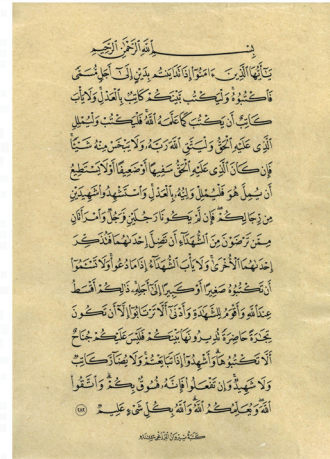 بِسْمِ اللَّهِ الرَّحْمَٰنِ الرَّحِيمِ
يَا أَيُّهَا الَّذِينَ ءَامَنُوا إِذَا تَدَايَنتُم بِدَيْنٍ إِلَىٰ أَجَلٍ مُّسَمًّى
فَاكْتُبُوهُ وَلْيَكْتُب بَّيْنَكُمْ كَاتِبٌ بِالْعَدْلِ وَلَا يَأْبَ
كَاتِبٌ أَن يَكْتُبَ كَمَا عَلَّمَهُ اللَّهُ فَلْيَكْتُبْ وَلْيُمْلِلِ
الَّذِي عَلَيْهِ الْحَقُّ وَلْيَتَّقِ اللَّهَ رَبَّهُ وَلَا يَبْخَسْ مِنْهُ شَيْئًا
فَإِن كَانَ الَّذِي عَلَيْهِ الْحَقُّ سَفِيهًا أَوْ ضَعِيفًا أَوْ لَا يَسْتَطِيعُ
أَن يُمِلَّ هُوَ فَلْيُمْلِلْ وَلِيُّهُ بِالْعَدْلِ وَاسْتَشْهِدُوا شَهِيدَيْنِ
مِن رِّجَالِكُمْ فَإِن لَّمْ يَكُونَا رَجُلَيْنِ فَرَجُلٌ وَامْرَأَتَانِ
مِمَّن تَرْضَوْنَ مِنَ الشُّهَدَاءِ أَن تَضِلَّ إِحْدَاهُمَا فَتُذَكِّرَ
إِحْدَاهُمَا الْأُخْرَىٰ وَلَا يَأْبَ الشُّهَدَاءُ إِذَا مَا دُعُوا وَلَا تَسْأَمُوا
أَن تَكْتُبُوهُ صَغِيرًا أَوْ كَبِيرًا إِلَىٰ أَجَلِهِ ذَٰلِكُمْ أَقْسَطُ
عِندَ اللَّهِ وَأَقْوَمُ لِلشَّهَادَةِ وَأَدْنَىٰ أَلَّا تَرْتَابُوا إِلَّا أَن تَكُونَ
تِجَارَةً حَاضِرَةً تُدِيرُونَهَا بَيْنَكُمْ فَلَيْسَ عَلَيْكُمْ جُنَاحٌ
أَلَّا تَكْتُبُوهَا وَأَشْهِدُوا إِذَا تَبَايَعْتُمْ وَلَا يُضَارَّ كَاتِبٌ
وَلَا شَهِيدٌ وَإِن تَفْعَلُوا فَإِنَّهُ فُسُوقٌ بِكُمْ وَاتَّقُوا
اللَّهَ وَيُعَلِّمُكُمُ اللَّهُ وَاللَّهُ بِكُلِّ شَيْءٍ عَلِيمٌ ٢٨٢